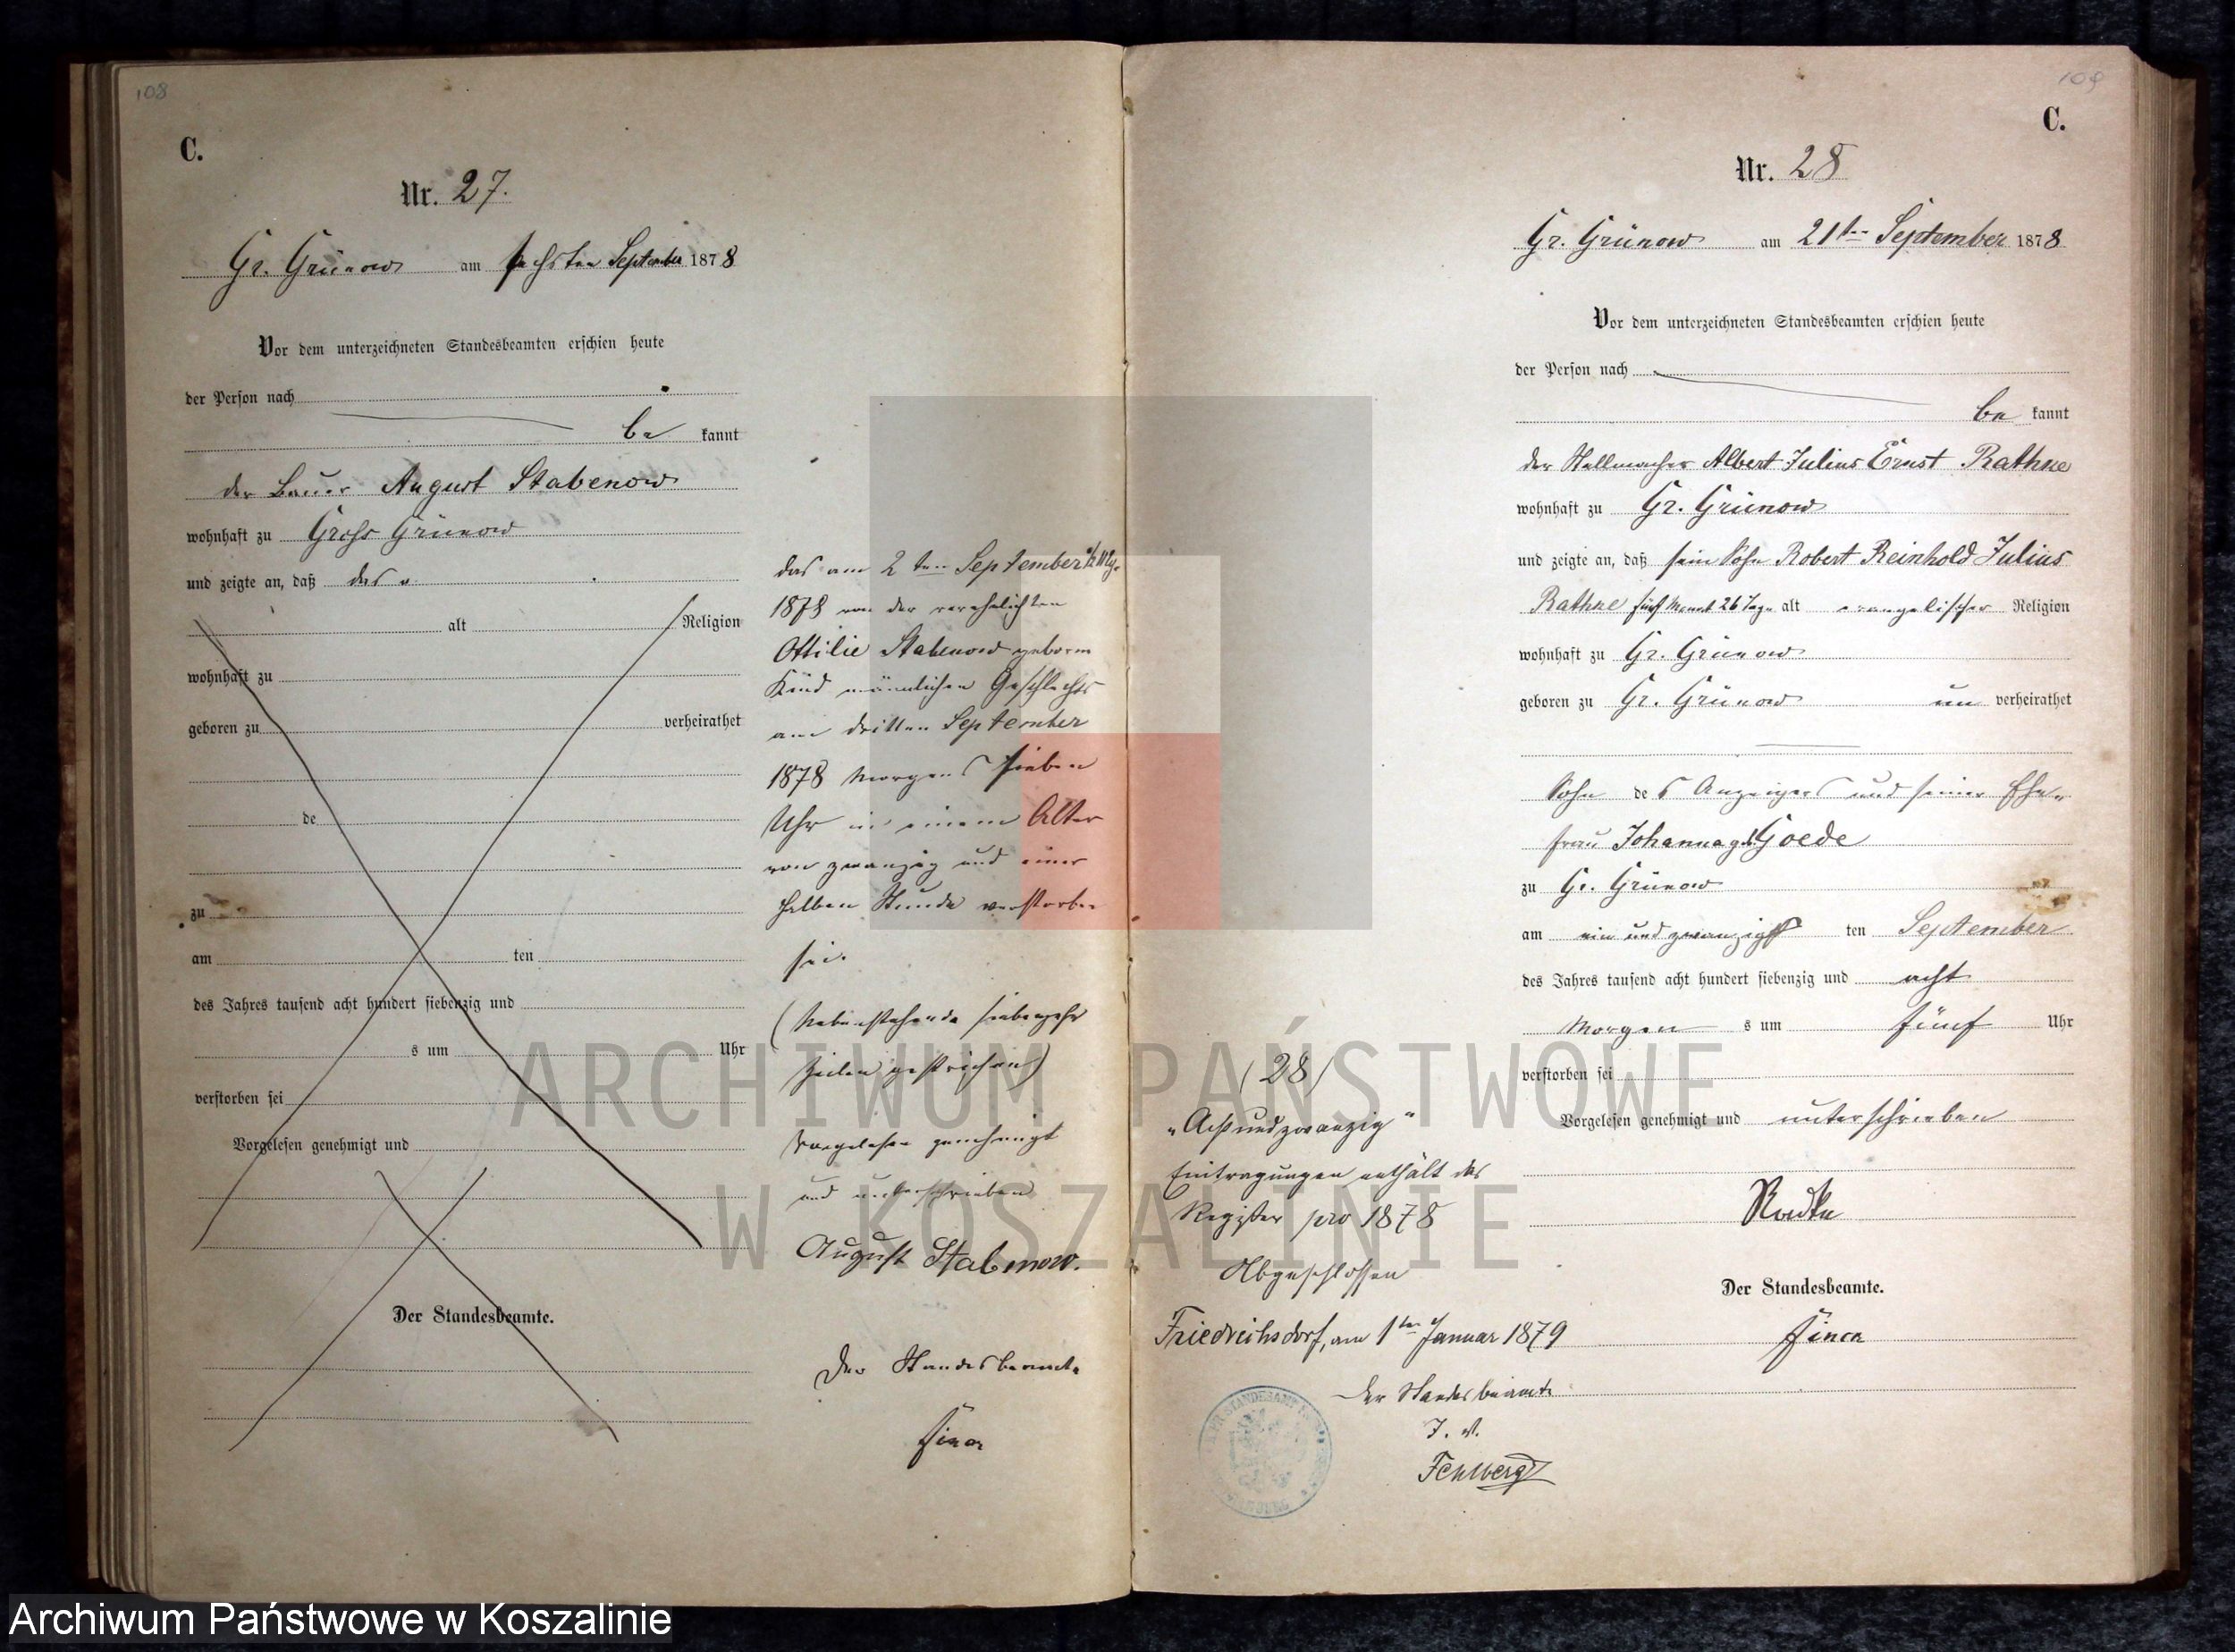 108
C.
Nr. 27.
Gr. Grünow am sechsten September 1878
Vor dem unterzeichneten Standesbeamten erschien heute
der Person nach
be kannt
der Bauer August Stabenow
wohnhaft zu Gross Grünow
und zeigte an, daß das
alt Religion
wohnhaft zu
geboren zu verheirathet
de
zu
am ten
des Jahres tausend acht hundert siebenzig und
s um Uhr
verstorben sei
Vorgelesen genehmigt und
Der Standesbeamte.
das am 2 ten September
1878 von der verehelichten
Ottilie Stabenow geborene
Kind männlichen Geschlechts
am dritten September
1878 Morgens sieben
Uhr in einem Alter
von zwanzig und einer
halben Stunde verstorben
sei.
(Nebenstehende siebenzehn
Zeilen gestrichen)
Vorgelesen genehmigt
und unterschrieben
August Stabenow.
Der Standesbeamte
109
C.
Nr. 28
Gr. Grünow am 21ten September 1878
Vor dem unterzeichneten Standesbeamten erschien heute
der Person nach
be kannt
der Stellmacher Albert Julius Ernst Rathke
wohnhaft zu Gr. Grünow
und zeigte an, daß sein Sohn Robert Reinhold Julius
Rathke fünf Monat 26 Tage alt evangelischer Religion
wohnhaft zu Gr. Grünow
geboren zu Gr. Grünow un verheirathet
Sohn des Anzeigers und seiner Ehe-
frau Johanna geb. Goede
zu Gr. Grünow
am ein und zwanzigst ten September
des Jahres tausend acht hundert siebenzig und acht
Morgen s um fünf Uhr
verstorben sei
Vorgelesen genehmigt und unterschrieben
Der Standesbeamte.
(28)
"Acht und zwanzig"
Eintragungen enthält das
Register pro 1878
Abgeschlossen
Friedrichsdorf, am 1ten Januar 1879
Der Standesbeamte
J. V.
Fehlberg
ARCHIWUM PAŃSTWOWE
W KOSZALINIE
Archiwum Państwowe w Koszalinie